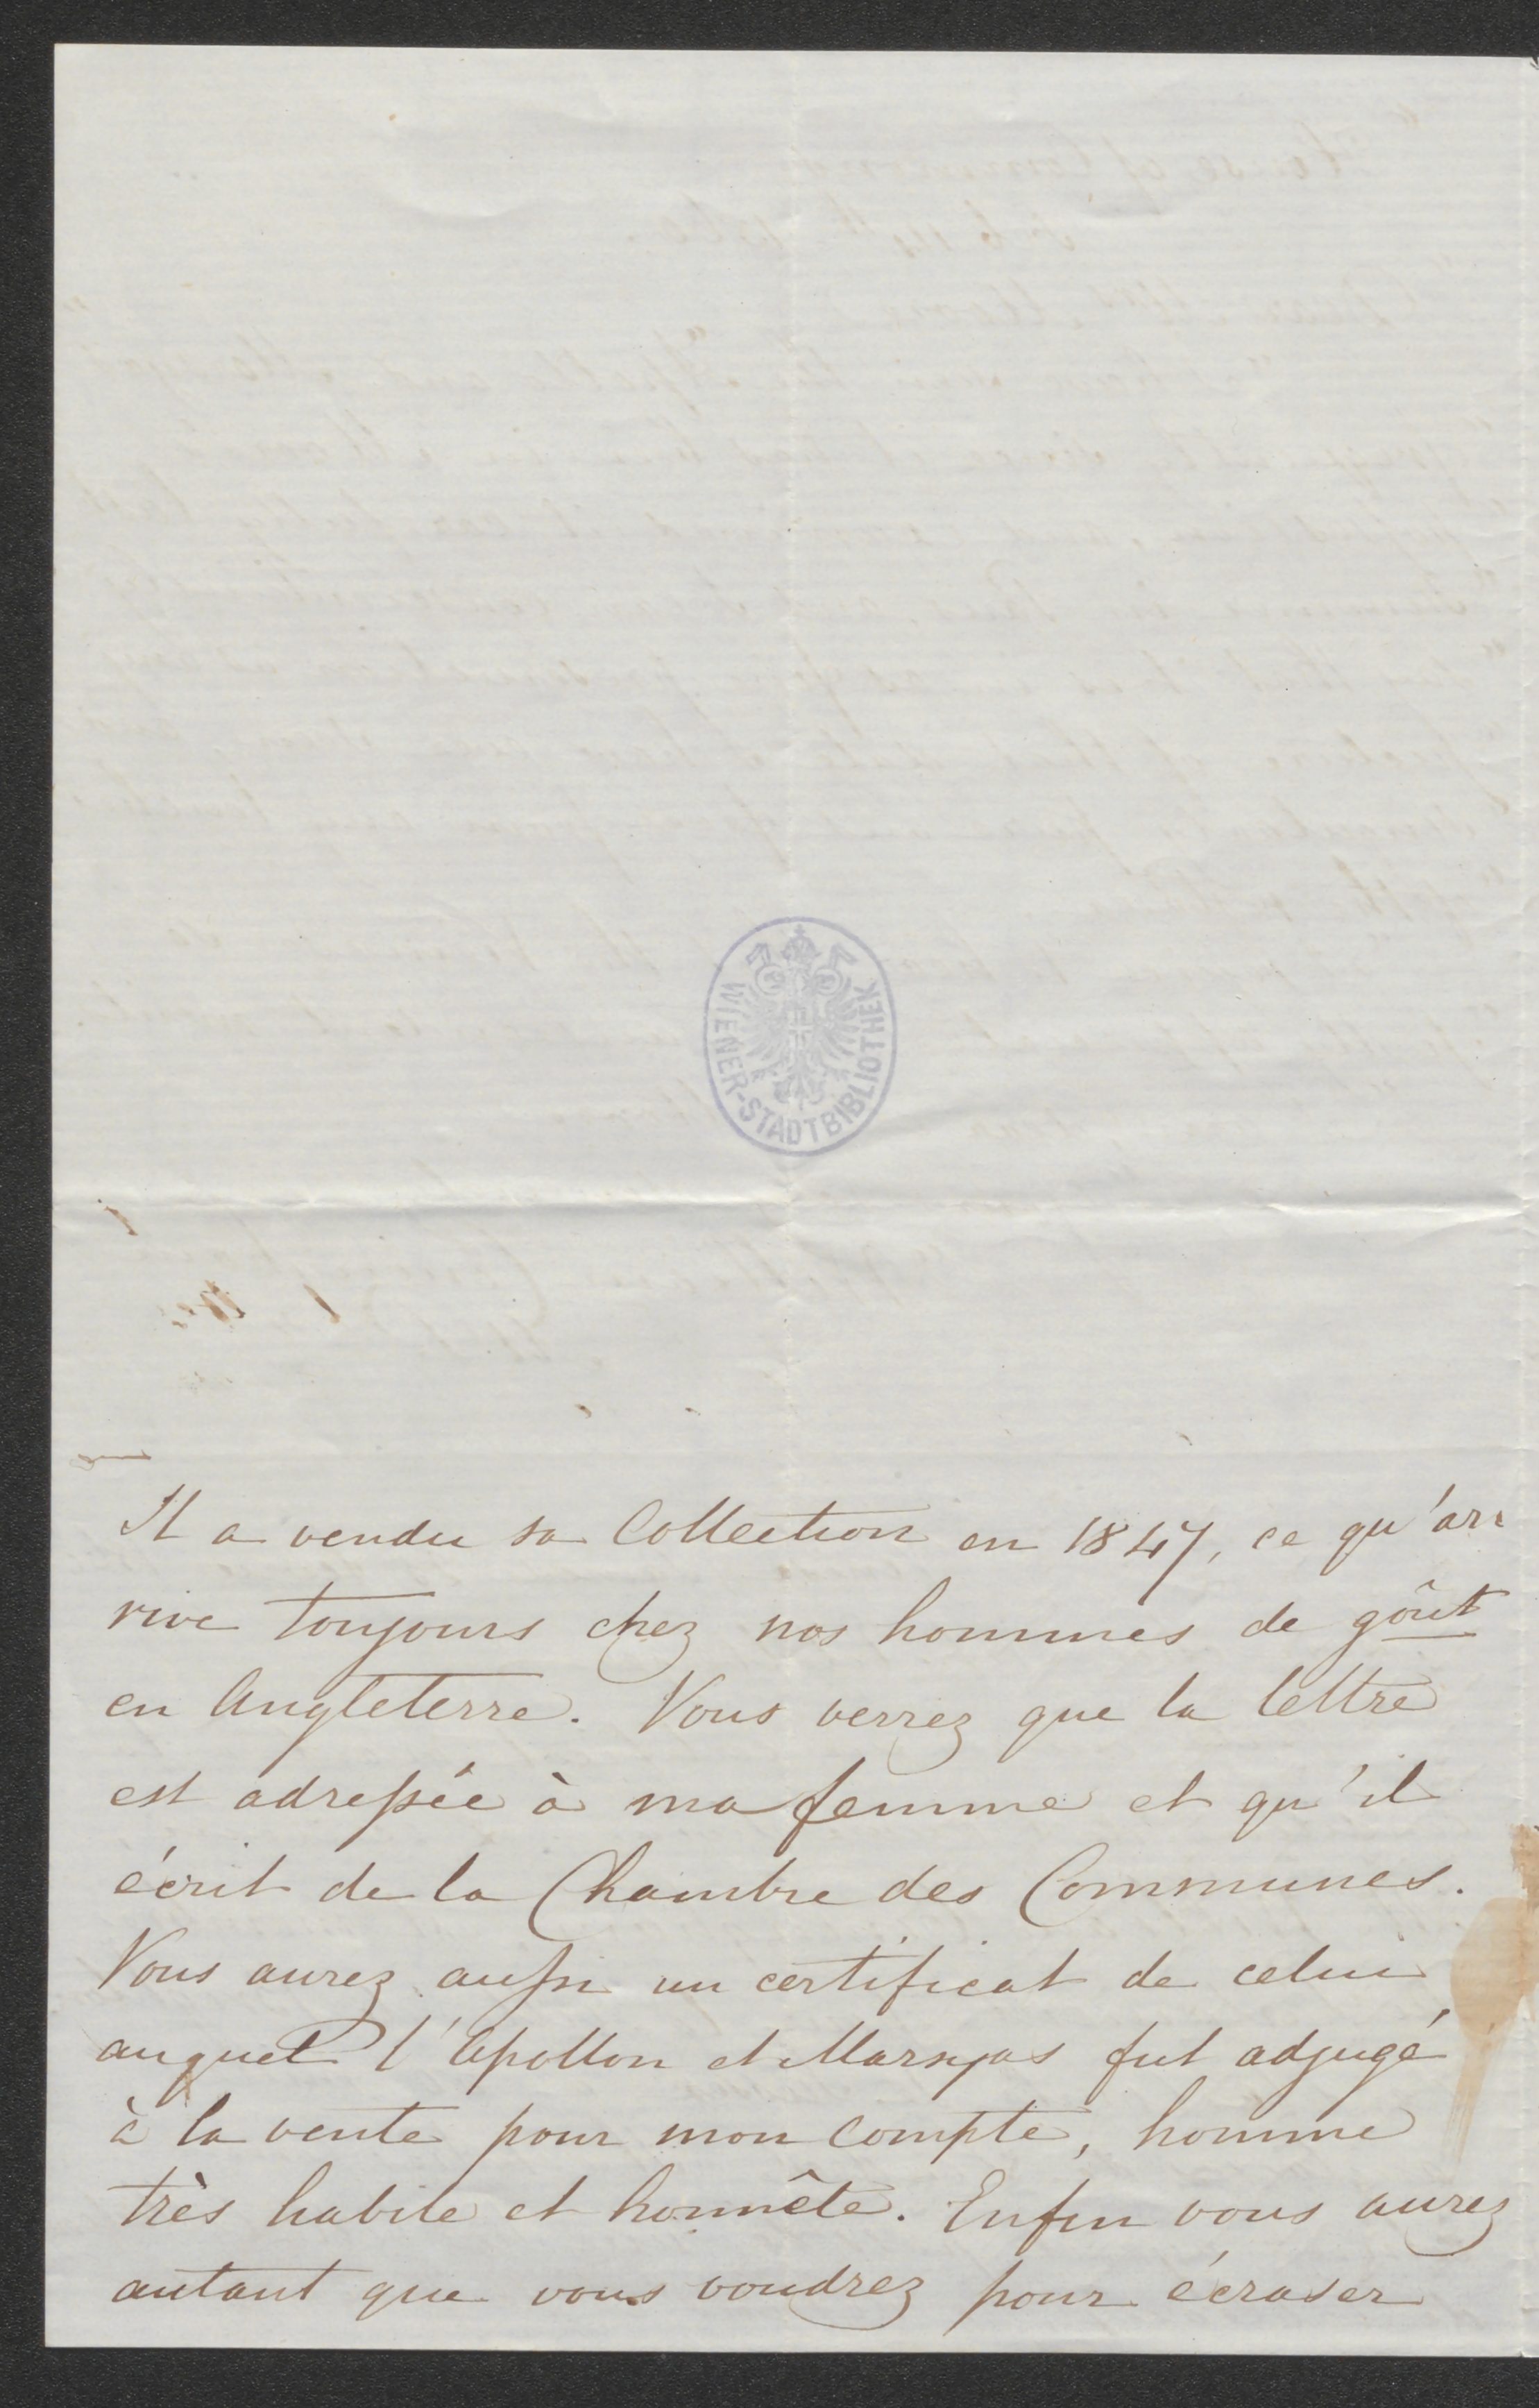 WIENER-STADTBIBLIOTHEK
Il a vendu sa Collection en 1847, ce qu'ar-
rive toujours chez nos hommes de goût
en Angleterre. Vous verrez que la lettre
est adressée à ma femme et qu'il
écrit de la Chambre des Communes.
Vous aurez aussi un certificat de celui
auquel l'Apollon et Marsyas fut adjugé
à la vente pour mon compte, homme
très habile et honnête. Enfin vous aurez
autant que vous voudrez pour écraser